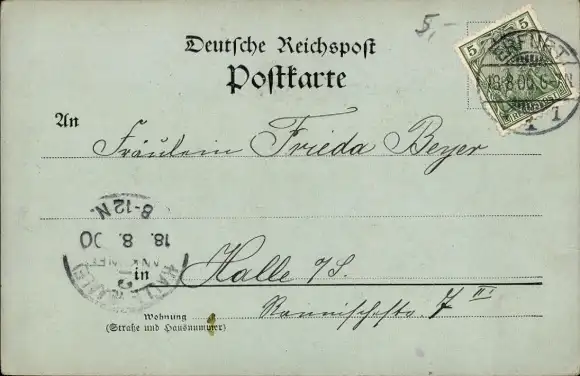 5,-
Deutsche Reichspost
Postkarte
5 5
ERFURT
18.8.00.
1 1
An Fräulein Frieda Beyer
8-12 N.
18. 8. 00
HALLE (SAALE)
in Halle a/S.
Wohnung Rannischestr. 7 III
(Straße und Hausnummer)